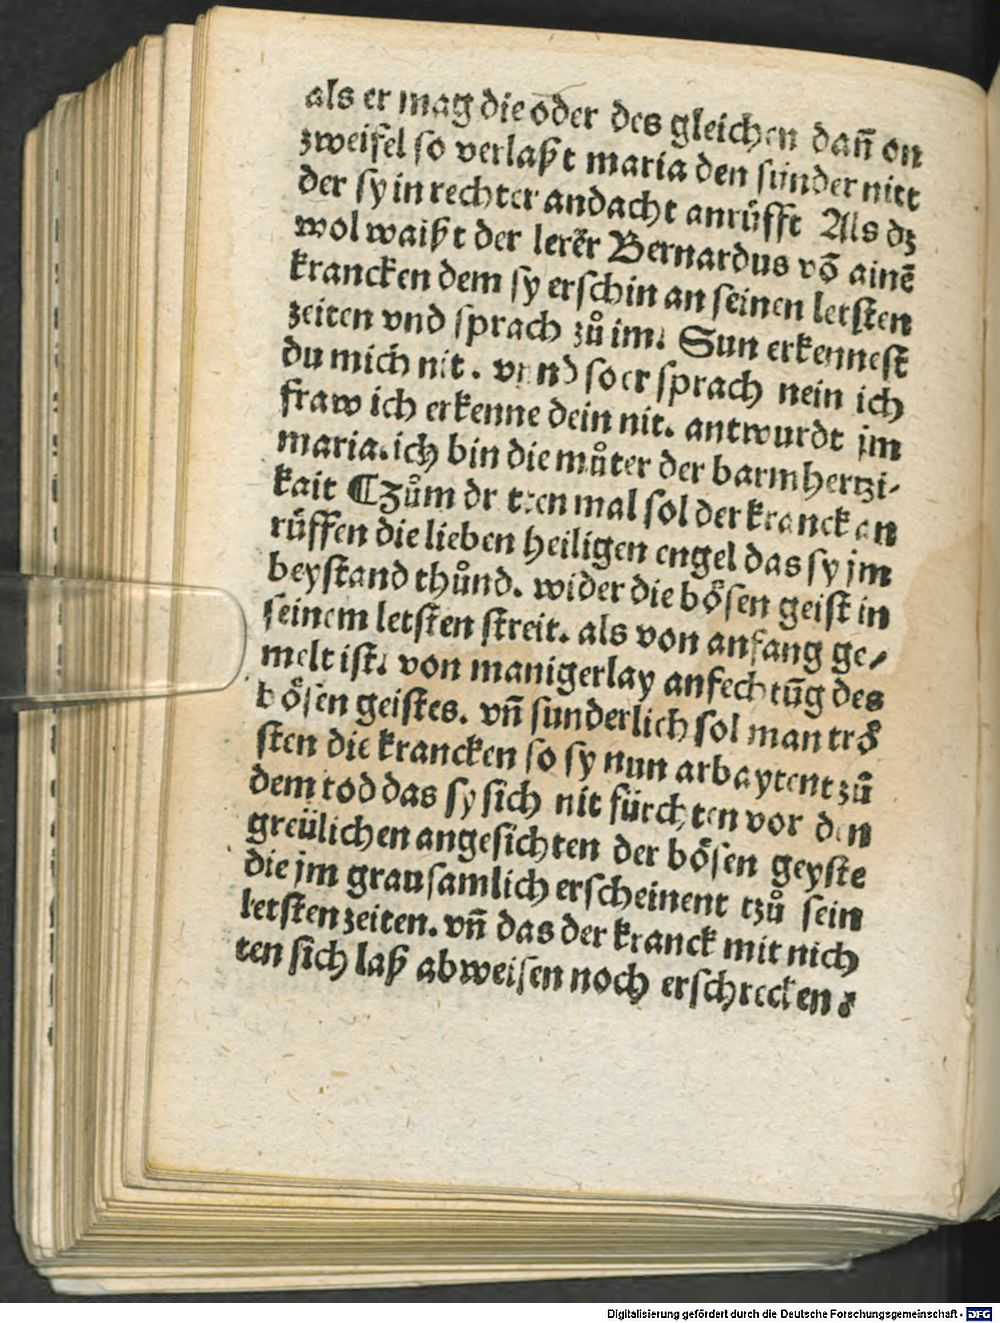 als er mag die oder des gleichen dañ on
zweifel so verlaßt maria den sunder nitt
der sy in rechter andacht anrůfft Als dz
wol waißt der lerer̃ Bernardus võ ainẽ
krancken dem sy erschin an seinen letsten
zeiten vnd sprach zů im. Sun erkennest
du mich nit. vnnd so er sprach nein ich
fraw ich erkenne dein nit. antwurdt jm
maria. ich bin die můter der barmhertzi-
kait ¶ Zům dritten mal sol der kranck an
růffen die lieben heiligen engel das sy jm
beystand thůnd. wider die bösen geist in
seinem letsten streit. als von anfang ge/
melt ist. von manigerlay anfechtũg des
bösen geistes. vñ sunderlich sol man trö
sten die krancken so sy nun arbaytent zů
dem tod das sy sich nit fürchten vor den
greülichen angesichten der bösen geyste
die jm grausamlich erscheinent tzů sein
letsten zeiten. vñ das der kranck mit nich
ten sich laß abweisen noch erschrecken
Digitalisierung gefördert durch die Deutsche Forschungsgemeinschaft - DFG